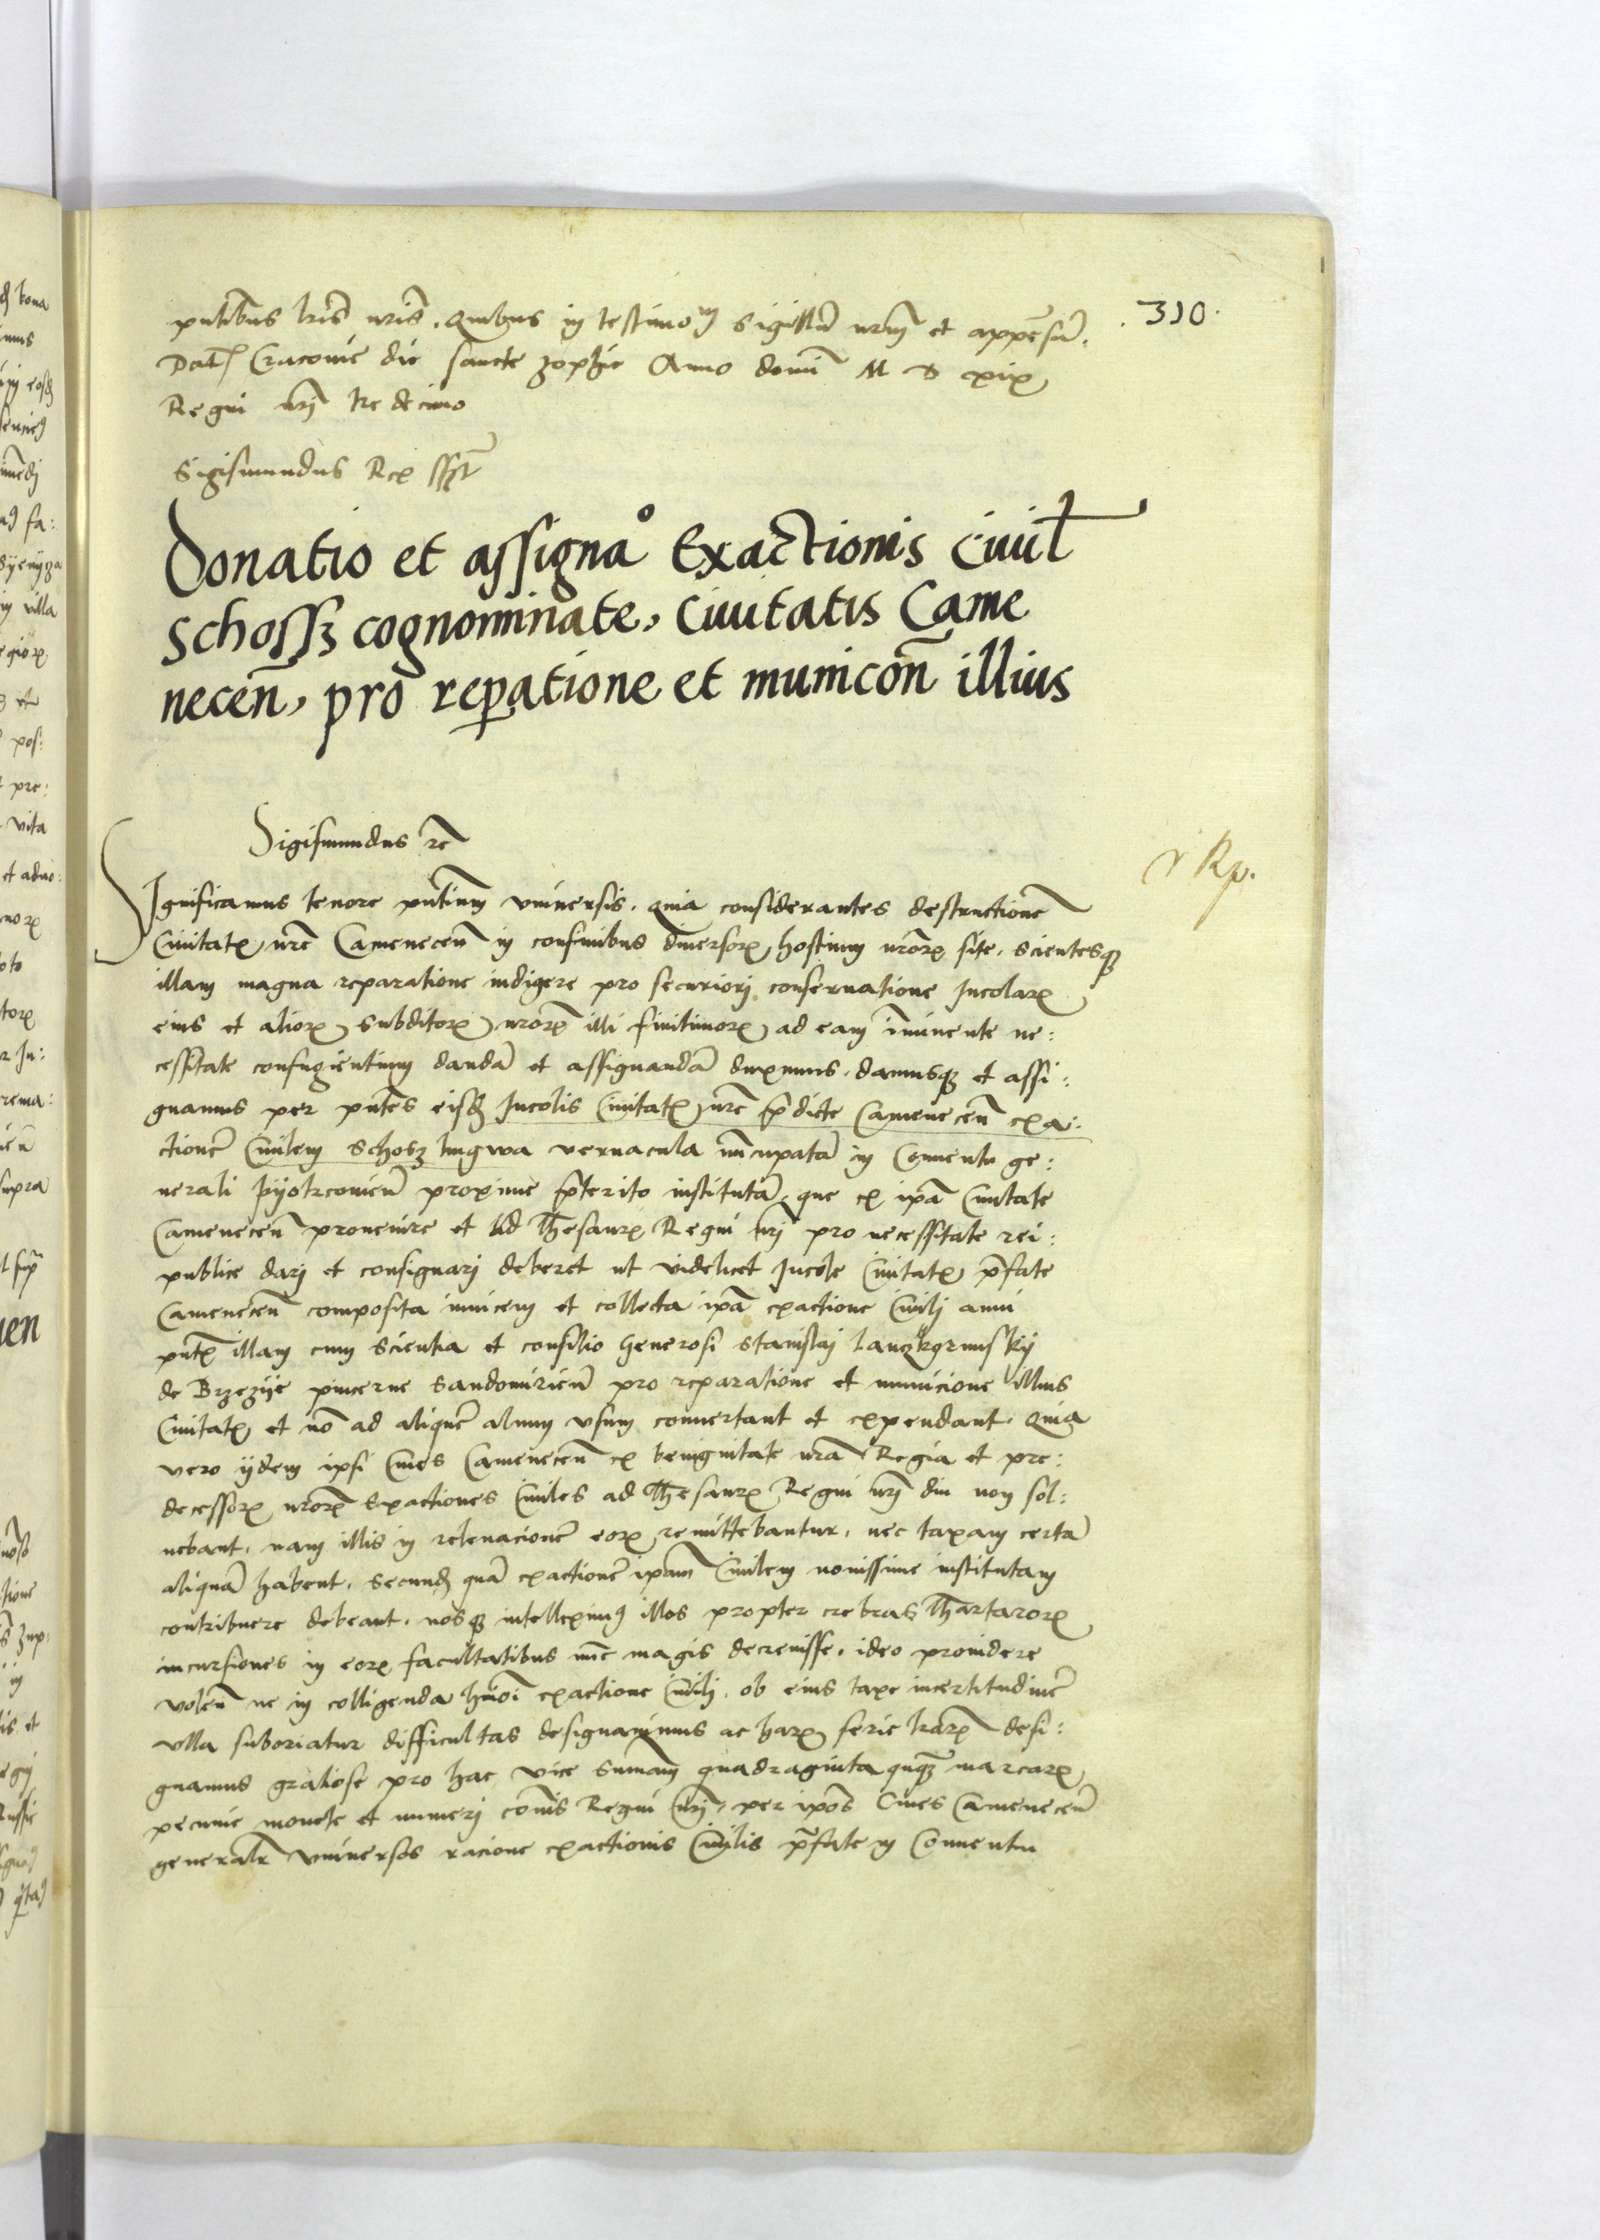 pntibus lris nris. Quibus in testimom Sigillu nrm et appensu.
310.
Dat Cracovie die sancte Zophie Anno domi M D xix
Regni nri tredecimo
Sigismundus Rex sspt
Donatio et assignao Exactionis Ciuil
Schossz cognominate, Ciuitatis Came
necen, pro reparatione et municon illius
Sigismundus rc
Significamus tenore pntium vniuersis. Quia considerantes destructione
Ciuitatis nre Camenecen in confinibus diuersorum hostium nrorum site. scientesque
illam magna reparatione indigere pro securiori conseruatione Incolarum
eius et aliorum subditorum nrorum illi finitimorum ad eam iminente ne:
cessitate confugientium danda et assignanda duximus. damusque et assi:
gnamus per pntes eisdem Incolis Ciuitatis nre pdicte Camenecen exa:
ctione Ciuilem Schosz lingwa vernacula nucupata in Conuentu ge:
nerali Pyotrcouien proxime pterito instituta, que ex ipa Ciuitate
Camenecen prouenire et ad Thesaurum Regni nri pro necessitate rei:
publice dari et consignari deberet ut videlicet Incole Ciuitatis pfate
Camenecen composita inuicem et collecta ipa exactione Ciuili anni
pntis illam cum scientia et consilio Generosi Stanislai Lanczkgrunsky
de Brzezye pincerne Sandomirien pro reparatione et municione illius
Ciuitatis et no ad alique alium vsum conuertant et expendant. Quia
vero ijdem ipsi Ciues Camenecen ex benignitate nra Regia et pre:
decessorum nrorum Exactiones Ciuiles ad Thesaurum Regni nri diu non sol:
uebant, nam illis in releuacione eorum remittebantur, nec taxam certa
aliqua habent. secundum qua exactione ipam Ciuilem nouissime institutam
contribuere debeant. nosque intelleximus illos propter crebras Thartarorum
incursiones in eorum facultatibus nuc magis decreuisse. ideo prouidere
volen ne in colligenda hmoi exactione Ciuili. ob eius taxe incertitudine
vlla suboriatur difficultas designauimus ac harum serie lrarum desi:
gnamus gratiose pro hac vice Summam quadraginta quinque marcarum
pecunie monete et numeri cois Regni nri, per ipos Ciues Camenecen
generalr vniuersos racione exactionis Ciuilis pfate in Conuentu